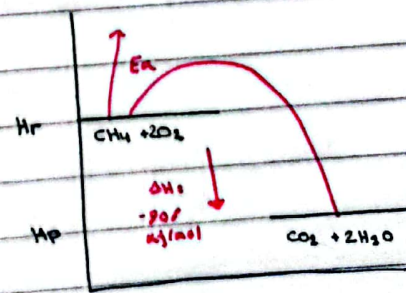 Ea
Hr
CH4 + 2O2
ΔH:
kJ/mol
Hp
CO2 + 2H2O